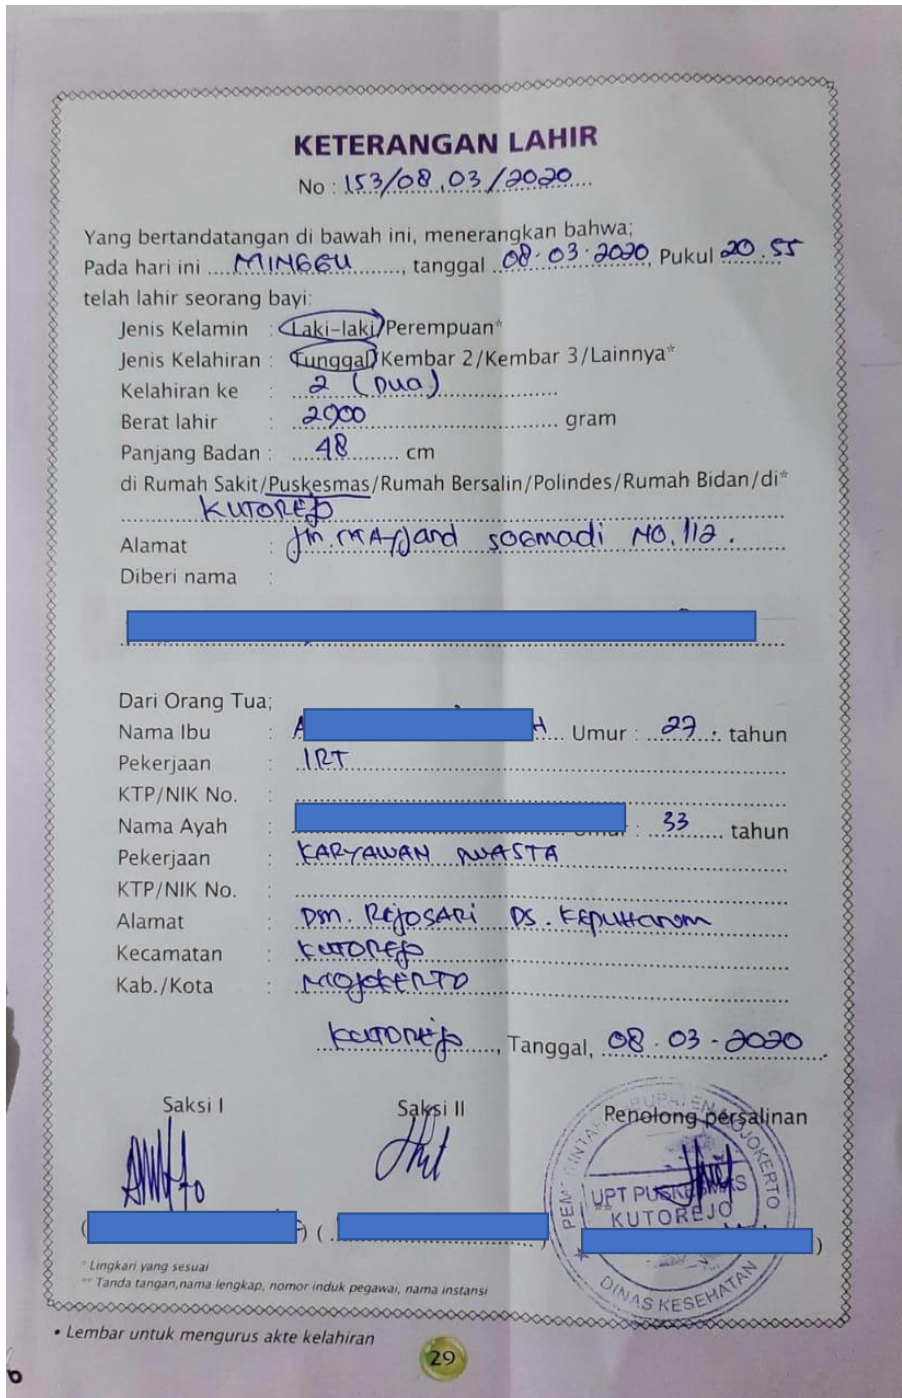 KETERANGAN LAHIR
No : 153/08.03/2020
Yang bertandatangan di bawah ini, menerangkan bahwa;
Pada hari ini MINGGU, tanggal 08.03.2020, Pukul 20.55
telah lahir seorang bayi:
Jenis Kelamin : Laki-laki/Perempuan*
Jenis Kelahiran : Tunggal/Kembar 2/Kembar 3/Lainnya*
Kelahiran ke : 2 (Dua)
Berat lahir : 2900 gram
Panjang Badan : 48 cm
di Rumah Sakit/Puskesmas/Rumah Bersalin/Polindes/Rumah Bidan/di*
KUTOREJO
Alamat : Jln. soemadi NO. 112.
Diberi nama :
Dari Orang Tua;
Nama Ibu : A H Umur : 27 tahun
Pekerjaan : IRT
KTP/NIK No. :
Nama Ayah : : 33 tahun
Pekerjaan : KARYAWAN SWASTA
KTP/NIK No. :
Alamat : Dsn. REJOSARI DS. KEPUHARUM
Kecamatan : KUTOREJO
Kab./Kota : MOJOKERTO
KUTOREJO, Tanggal, 08.03-2020
Saksi I Saksi II Penolong persalinan
PEMERINTAH KABUPATEN MOJOKERTO
UPT PUSKESMAS
KUTOREJO
DINAS KESEHATAN
( ) ( ) ( )
* Lingkari yang sesuai
** Tanda tangan, nama lengkap, nomor induk pegawai, nama instansi
• Lembar untuk mengurus akte kelahiran
29